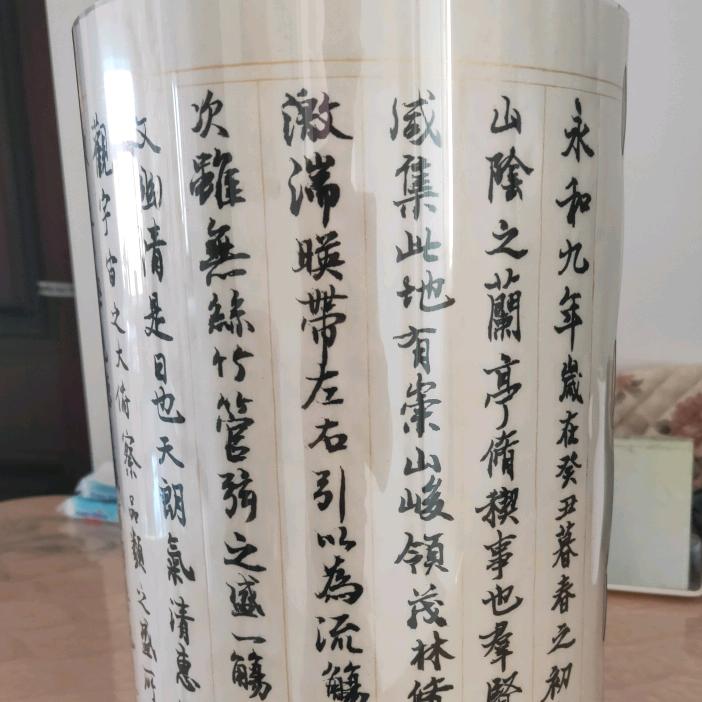 永和九年歲在癸丑暮春之初
山陰之蘭亭脩稧事也羣賢
咸集此地有崇山峻領茂林脩
激湍暎帶左右引以為流觴
次雖無絲竹管弦之盛一觴
幽清是日也天朗氣清惠
觀宇宙之大俯察品類之盛所